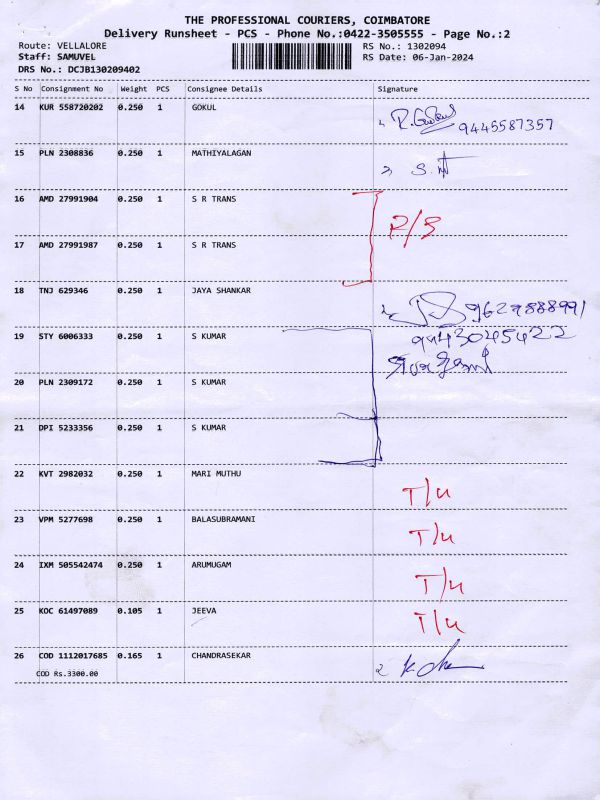 THE PROFESSIONAL COURIERS, COIMBATORE
Delivery Runsheet - PCS - Phone No.:0422-3505555 - Page No.:2
Route: VELLALORE RS No.: 1302094
Staff: SAMUVEL RS Date: 06-Jan-2024
DRS No.: DCJB130209402
S No Consignment No Weight PCS Consignee Details Signature
14 KUR 558720202 0.250 1 GOKUL
9445587357
15 PLN 2308836 0.250 1 MATHIYALAGAN
16 AMD 27991904 0.250 1 S R TRANS
R/S
17 AMD 27991987 0.250 1 S R TRANS
18 TNJ 629346 0.250 1 JAYA SHANKAR
9629888991
19 STY 6006333 0.250 1 S KUMAR 9443045422
20 PLN 2309172 0.250 1 S KUMAR
21 DPI 5233356 0.250 1 S KUMAR
22 KVT 2982032 0.250 1 MARI MUTHU T/u
23 VPM 5277698 0.250 1 BALASUBRAMANI T/u
24 IXM 505542474 0.250 1 ARUMUGAM T/u
25 KOC 61497089 0.105 1 JEEVA T/u
26 COD 1112017685 0.165 1 CHANDRASEKAR
COD Rs.3300.00